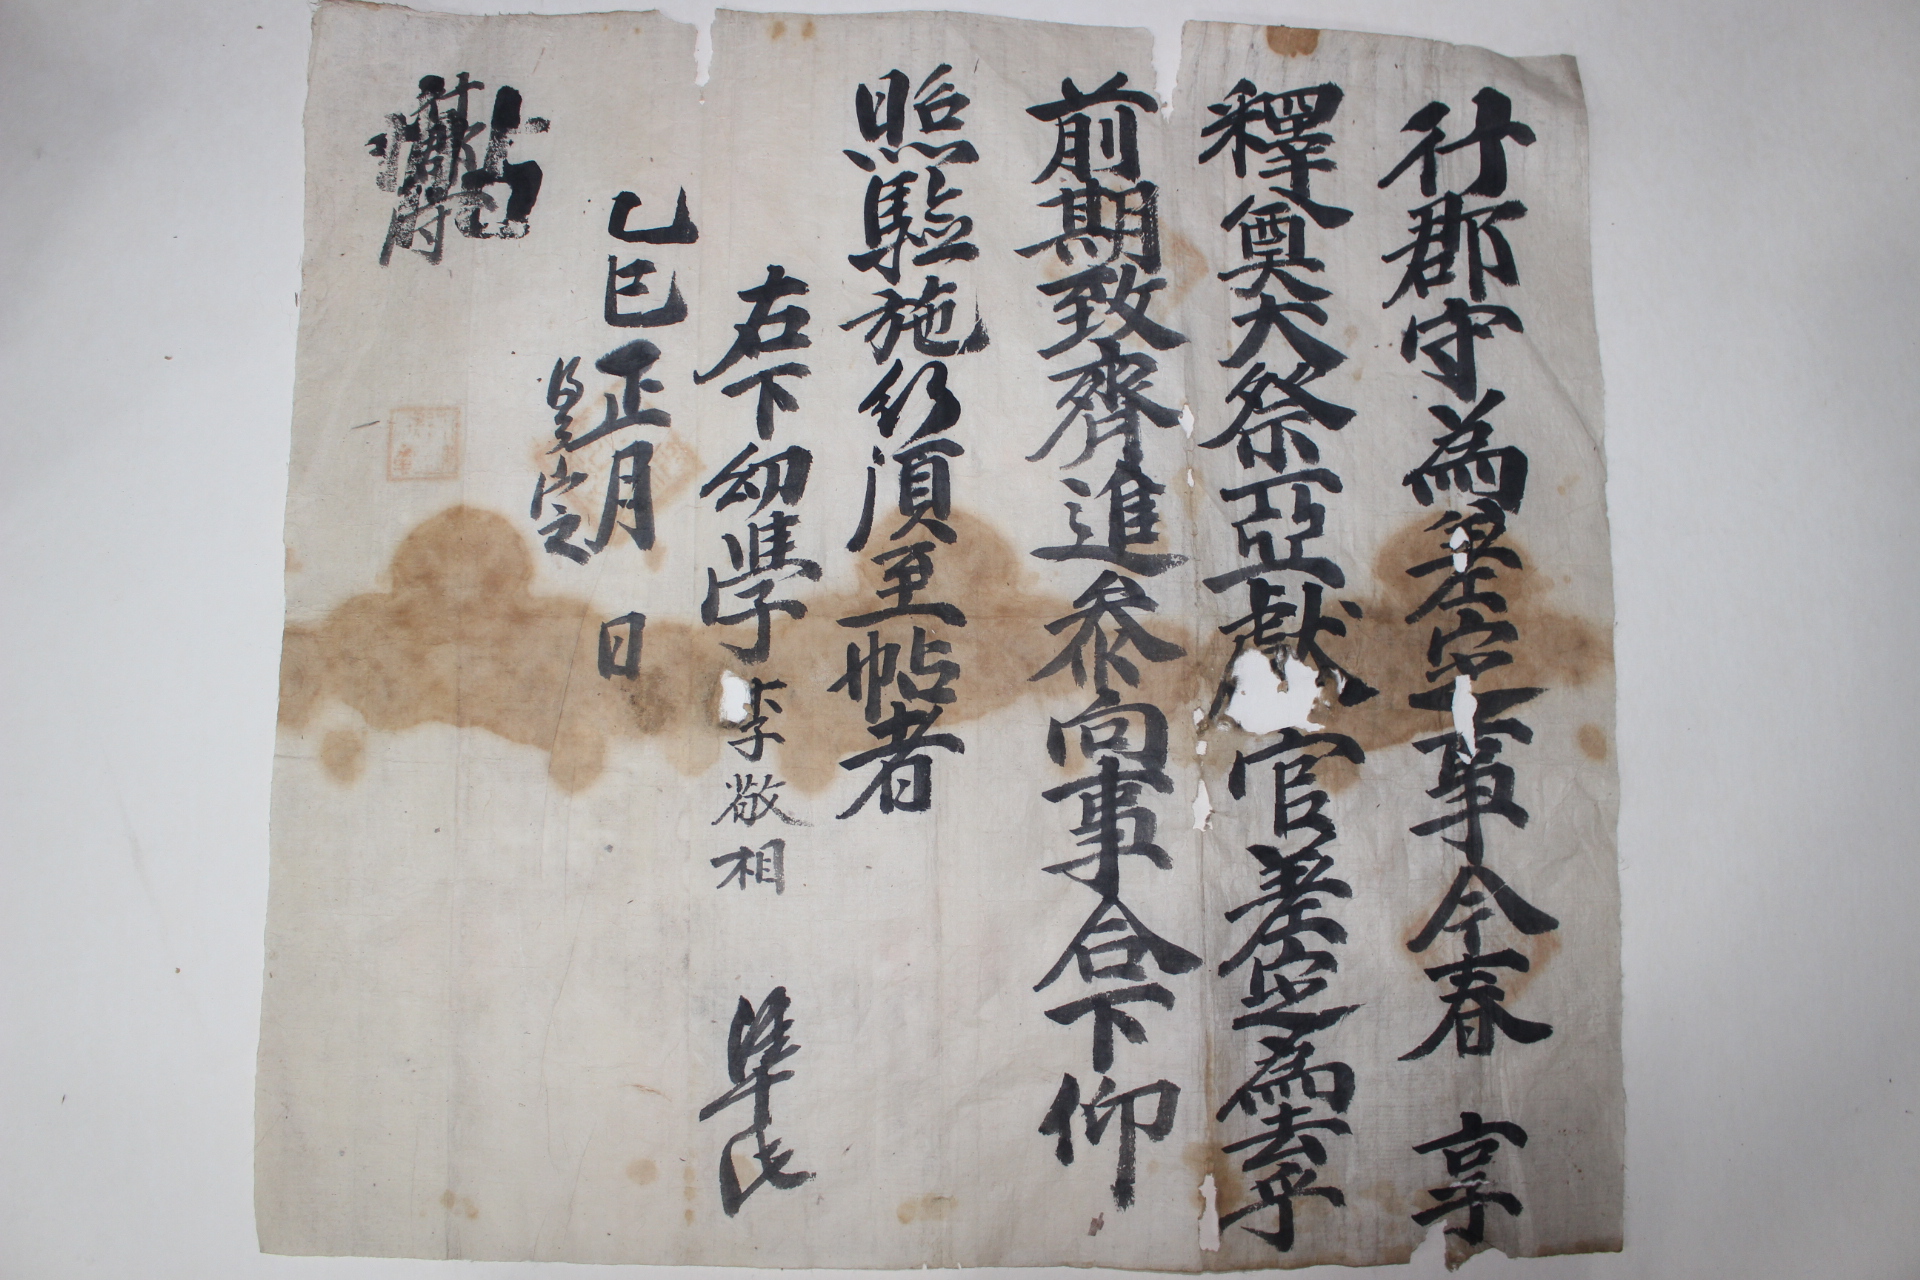 行郡守為差定事今春 享
釋奠大祭亞獻官差定為去乎
前期致齊進參向事合下仰
照驗施行須至帖者
右下幼學李敬相 準此
乙巳正月 日
帖
行郡守